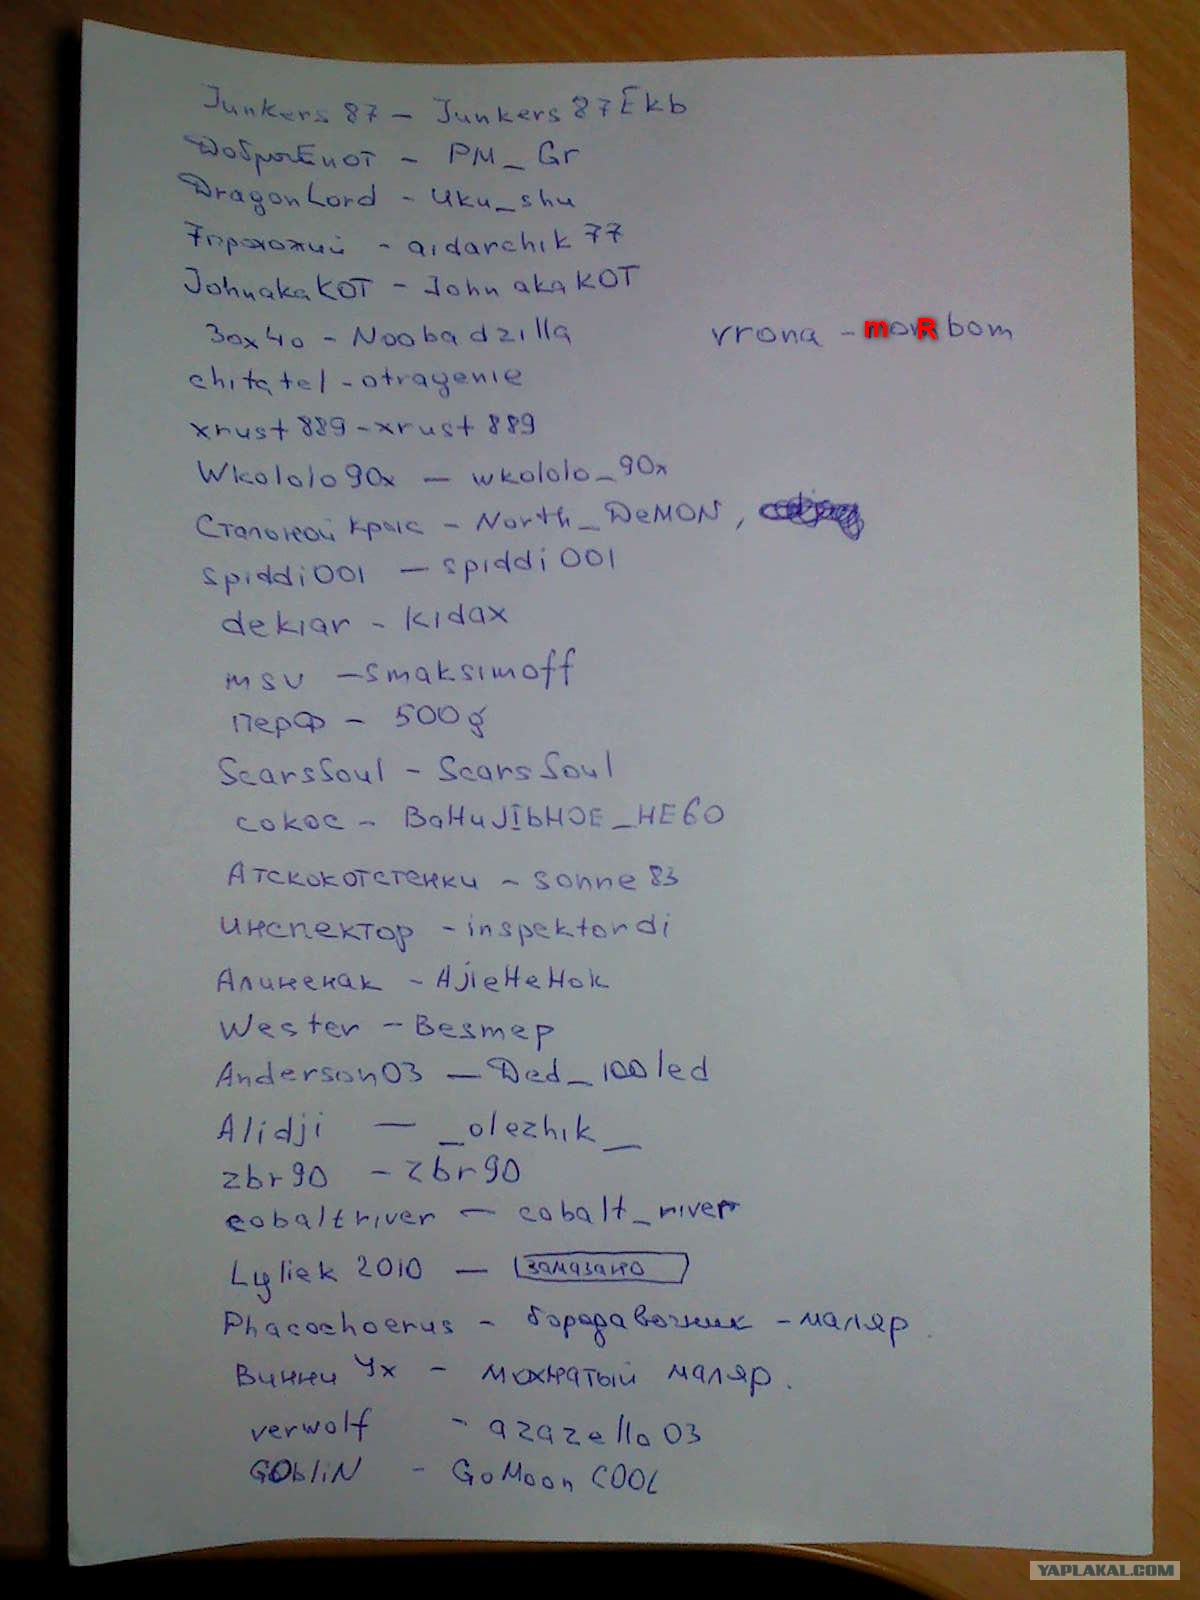 Junkers87 – Junkers87Ekb
ДобрыЕнот – PM_Gr
DragonLord – Uku_shu
7прохожий – aidarchik77
JohnakaKOT – JohnakaKOT
30x40 – Noobadzilla
vrona – moRbom
chitatel – otragenie
xrust889 – xrust889
Wkololo90x – wkololo_90x
Стальной крыс – North_DeMON,
spiddi001 – spiddi001
dekiar – kidax
msv – smaksimoff
перФ – 500g
ScarsSoul – ScarsSoul
сокос –
Атскокотстенки – sonne83
инспектор – inspektordi
Алиненак – AJIeHeHok
Wester – Becmep
Anderson03 – Ded_100led
Alidji – _olezhik_
zbr90 – zbr90
cobaltriver – cobalt_river
Lyliek2010 – замазано
Phacochoerus – бородавочник – маляр.
Винни Ух – мохнатый маляр.
verwolf – azazello03
GOBliN – GoMoonCOOL
YAPLAKAL.COM